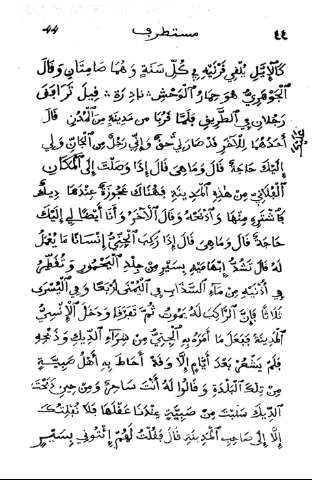 ٤٤ مستطرف 44
كالإيّل يلقي قرنيه في كلّ سنة وهما صامتان وقال
الجوهريّ هو حمار الوحش نادرة قيل ترافق
رجلان في الطريق فلمّا قربا من مدينة من المدن قال
أحدهما للآخر قد صار لي حقّ وإنّي رجل من الجانّ ولي
إليك حاجة قال وما هي قال إذا وصلت إلى المكان
الفلاني من هذه المدينة فهناك عجوزة عندها ديك
فاشتره منها واذبحه وقال الآخر وأنا أيضا لي إليك
حاجة قال وما هي قال إذا ركب الجنّي إنسانا ما يعمل
له قال تشدّ إبهاميه بسير من جلد اليحمور وتقطر
في أذنيه من ماء السذاب في اليمنى أربعا وفي اليسرى
ثلاثا فإنّ الراكب له يموت ثمّ تفرّقا ودخل الإنسيّ
المدينة ففعل ما أمره به الجنّي من شراء الديك وذبحه
فلم يشعر بعد أيّام إلا وقد أحاط به أهل صبيّة
من تلك البلدة وقالوا له أنت ساحر ومن حين ذبحت
الديك سلبت من صبيّة عندنا عقلها فلا نفلتك
إلا إلى صاحب المدينة قال فقلت لهم ائتوني بسير